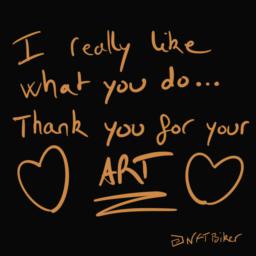 I really like
what you do...
Thank you for your
ART
@NFTBiker